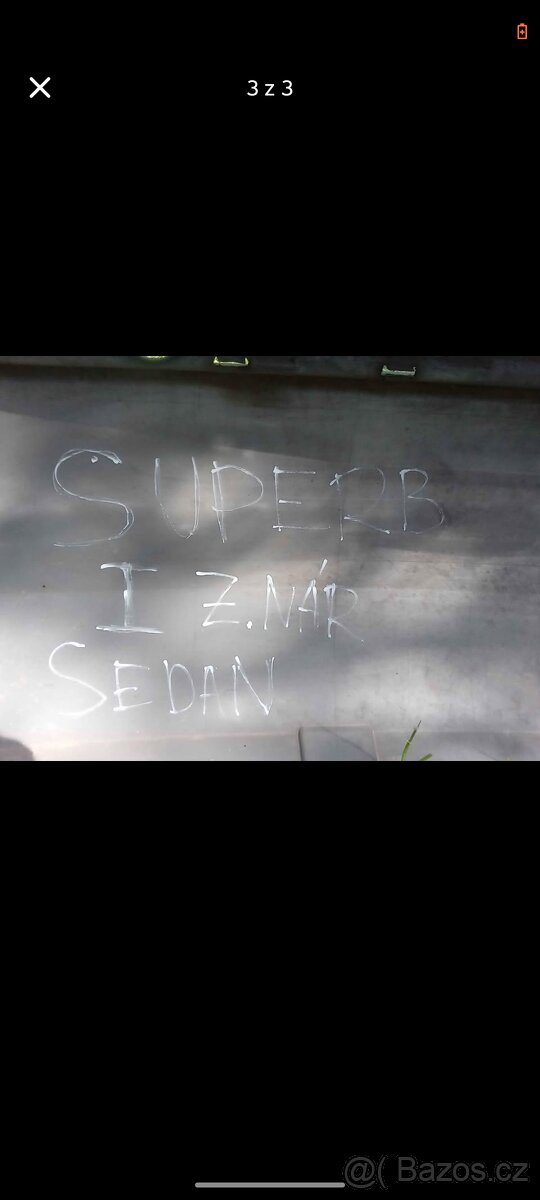 3 z 3
SUPERB
I Z.NÁR
SEDAN
@( Bazos.cz